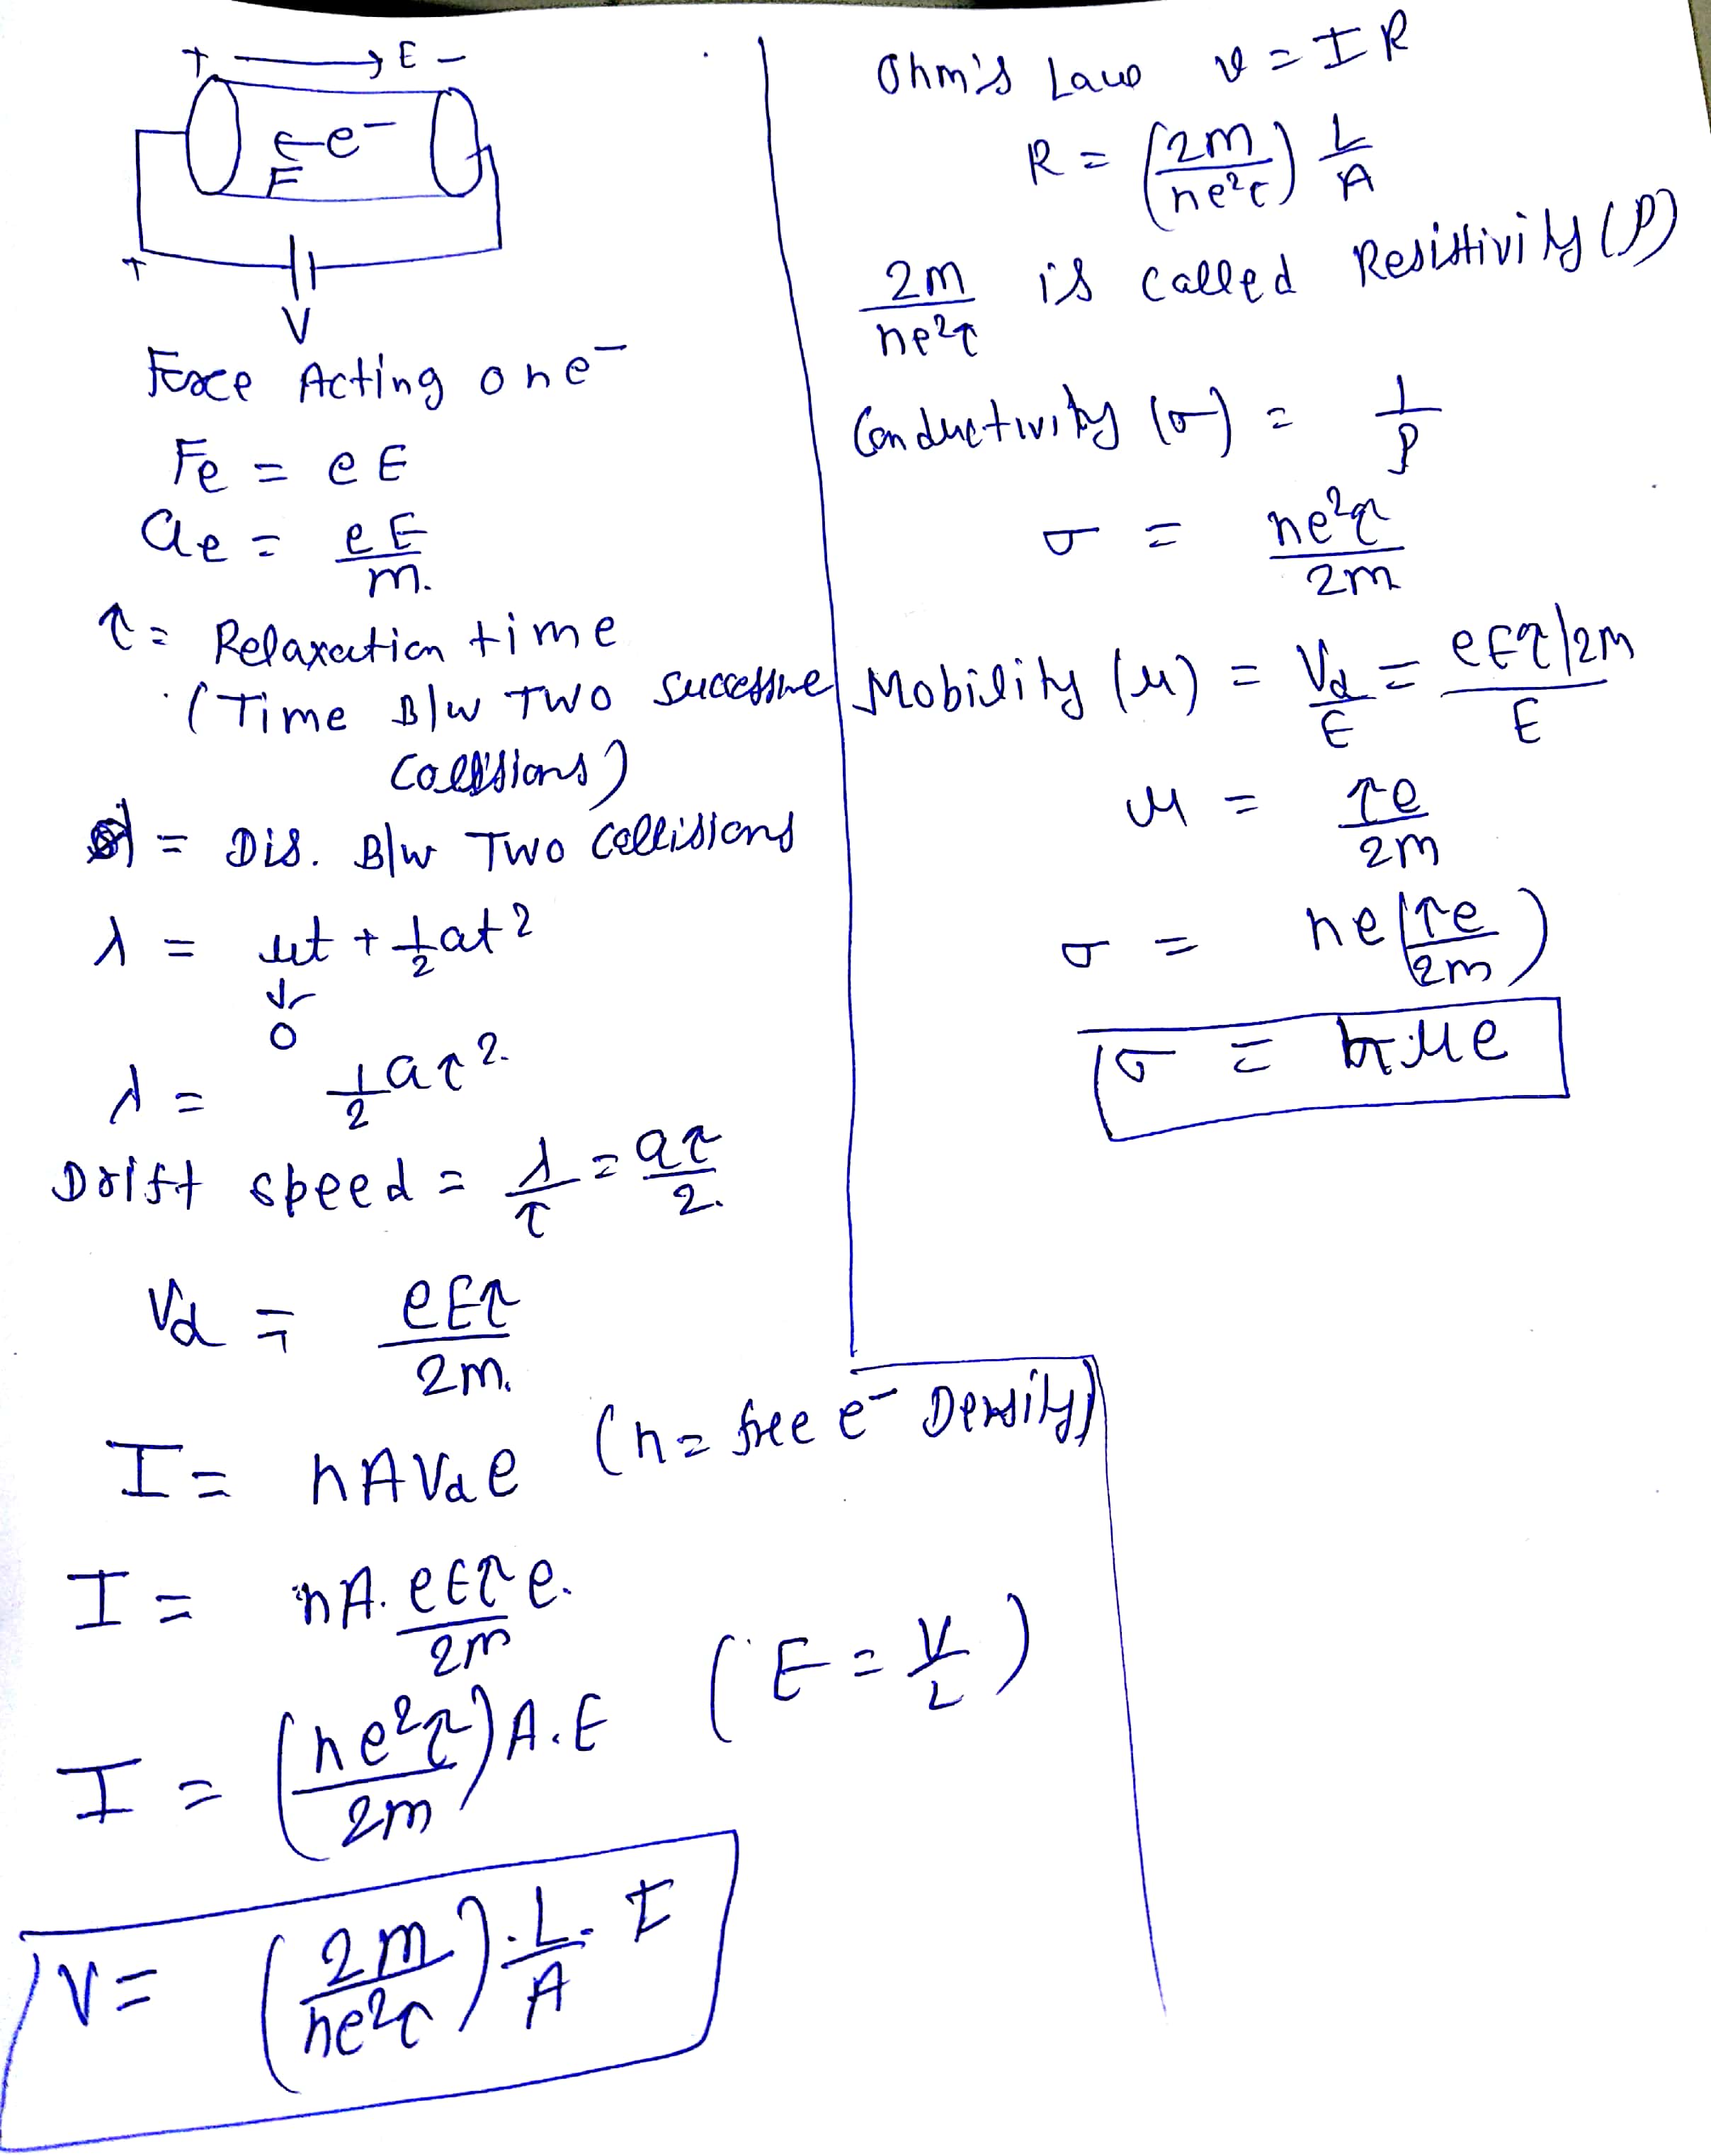 + → E -
← e⁻
F
+
V
Force Acting on e⁻
Fe = eE
ae = eE/m.
τ = Relaxation time
(Time B/w Two successive
Collisions)
λ = Dis. B/w Two Collissions
λ = ut + 1/2 at²
↓
0
λ = 1/2 aτ².
Drift speed = λ/τ = aτ/2.
Vd = eEτ/2m.
I = nAVde (n = free e⁻ Density)
I = nA. eEτ/2m e.
I = (ne²τ/2m) A.E (E = V/L)
V = (2m/ne²τ) . L/A . I
Ohm's Law V = IR
R = (2m/ne²τ) L/A
2m/ne²τ is called Resistivity (ρ)
Conductivity (σ) = 1/ρ
σ = ne²τ/2m
Mobility (μ) = Vd/E = eEτ/2m / E
μ = τe/2m
σ = ne(τe/2m)
σ = nμe